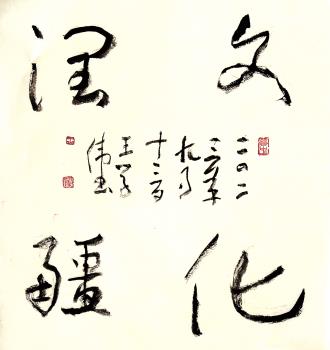 文化
润疆
二〇二
三年
九月
十三日
王学
伟书